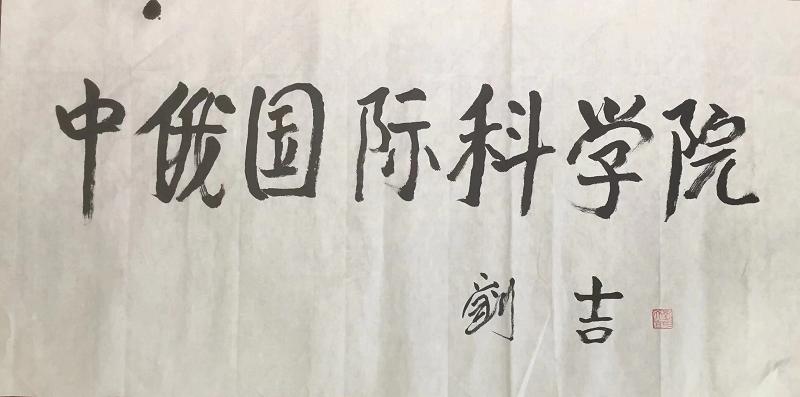 中俄国际科学院
劉吉